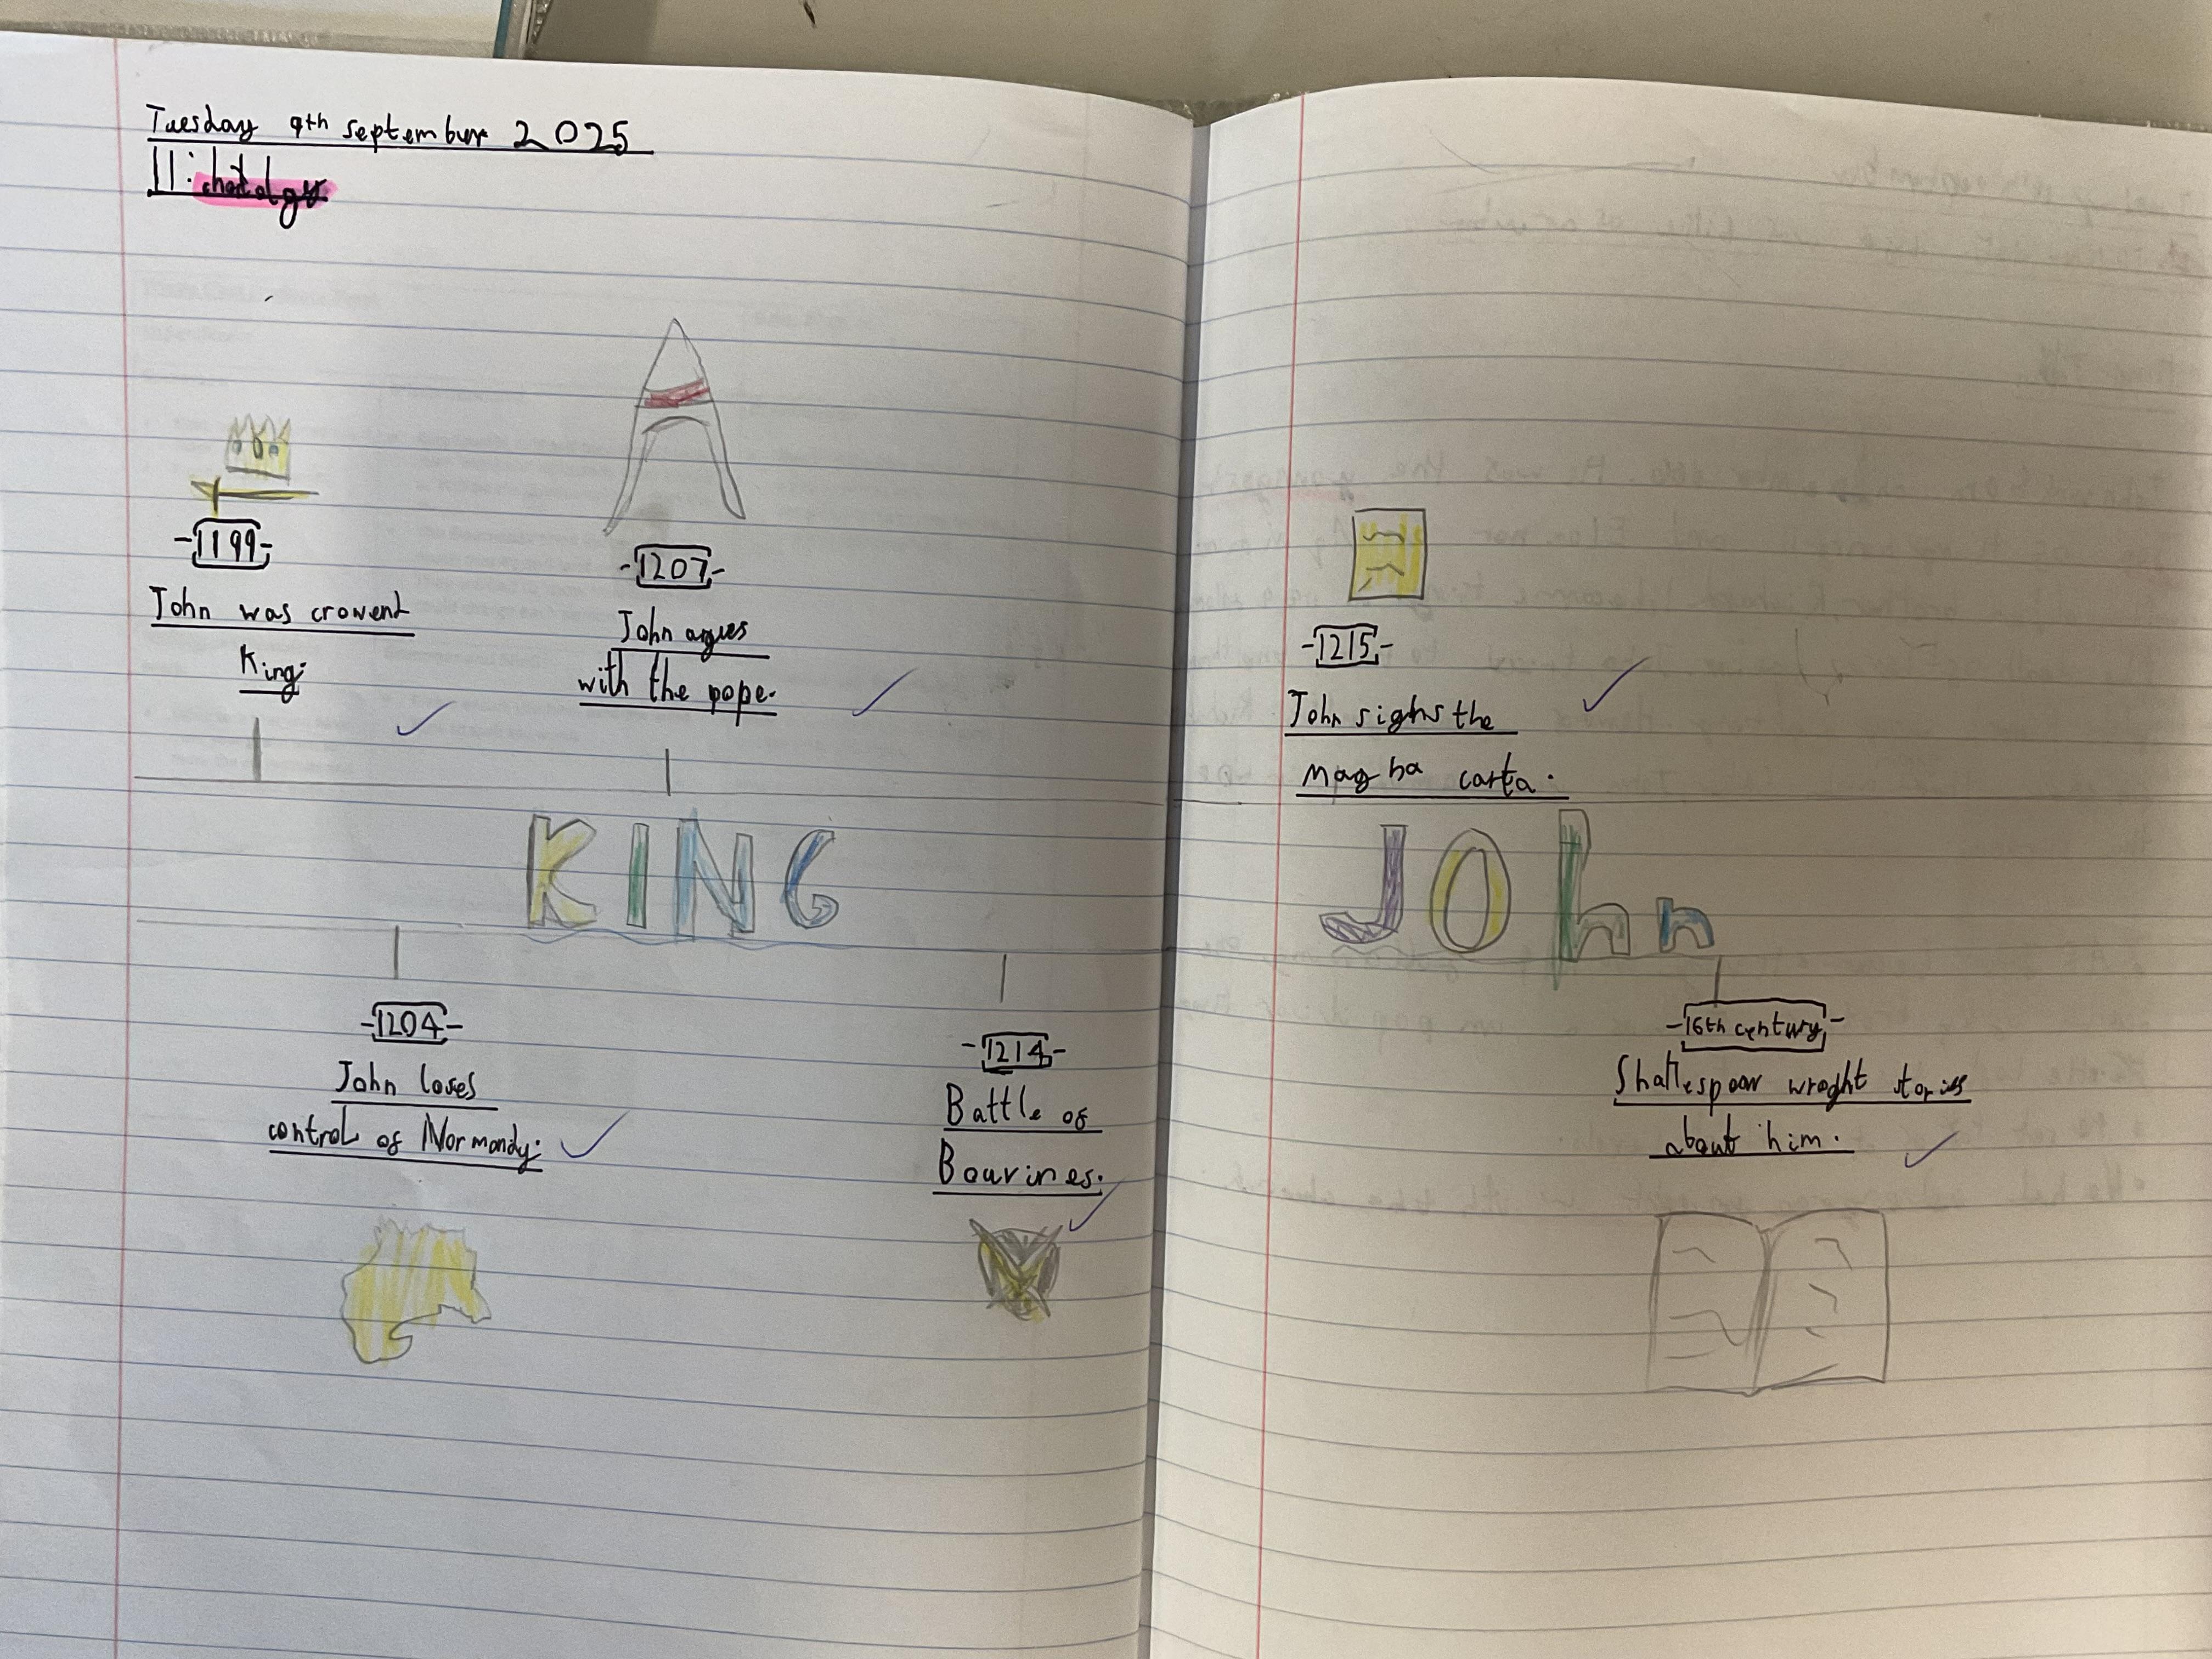 Tuesday 9th september 2025
-1199-
John was crowent
King.
-1207-
John argues
with the pope.
KING
-1204-
John loses
control of Normandy.
-1214-
Battle of
Bourines.
-1215-
John signs the
magna carta.
JOhn
-16th century-
Shakespear wroght stories
about him.